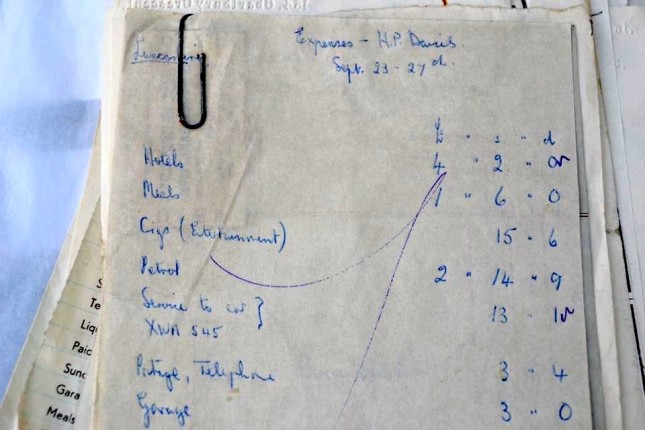 Expenses - H.P. Davis.
Sept. 23 - 27th.
£ " s " d
Hotels 4 " 2 " 0
Meals 1 " 6 " 0
Cigs (Entertainment) 15 " 6
Petrol 2 " 14 " 9
Service to car } 13 " 1
XWA 545
Postage, Telephone 3 " 4
Garage 3 " 0
S
Te
Liqu
Paic
Sunc
Gara
Meals